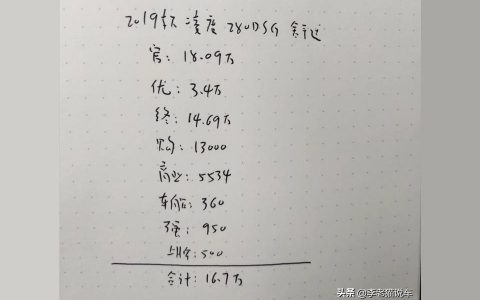 2019款 凌度 280DSG 舒适
官: 18.09万
优: 3.4万
终: 14.69万
购: 13000
商业: 5534
车船: 360
强: 950
上牌: 500
合计: 16.7万
头条 @李老猫说车